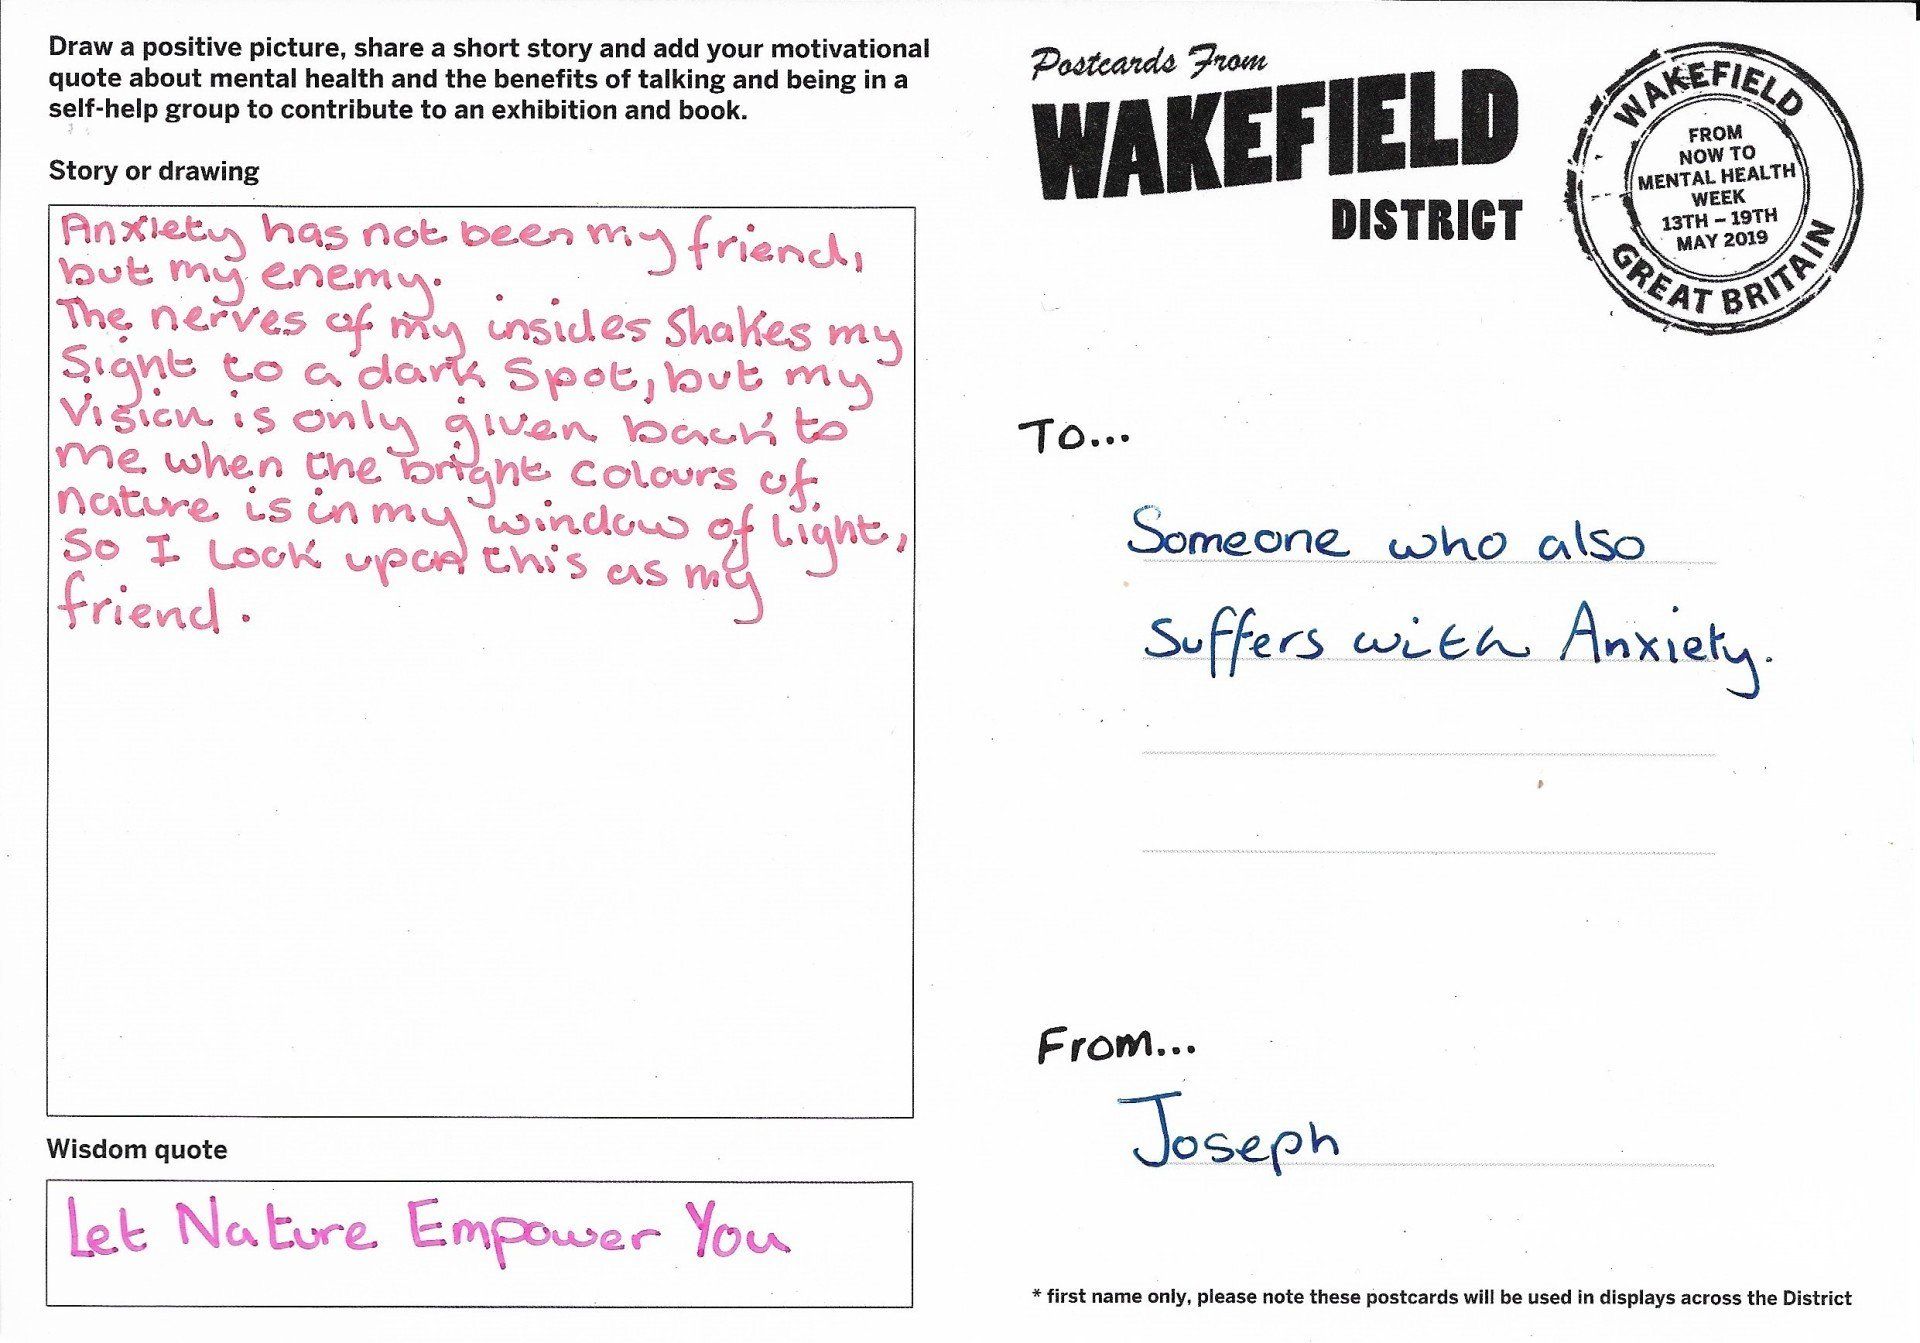 Draw a positive picture, share a short story and add your motivational
quote about mental health and the benefits of talking and being in a
self-help group to contribute to an exhibition and book.
Story or drawing
Anxiety has not been my friend,
but my enemy.
The nerves of my insides shakes my
sight to a dark spot, but my
vision is only given back to
me when the bright colours of
nature is in my window of light,
so I look upon this as my
friend.
Wisdom quote
Let Nature Empower You
Postcards From
WAKEFIELD
DISTRICT
WAKEFIELD
FROM
NOW TO
MENTAL HEALTH
WEEK
13TH – 19TH
MAY 2019
GREAT BRITAIN
To...
Someone who also
suffers with Anxiety.
From...
Joseph
* first name only, please note these postcards will be used in displays across the District